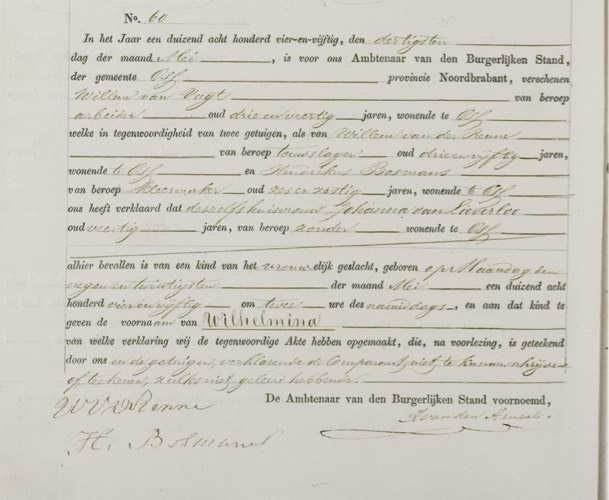 No. 60
In het Jaar een duizend acht honderd vier-en-vijftig, den dertigsten
dag der maand Mei, is voor ons Ambtenaar van den Burgerlijken Stand,
der gemeente Oss provincie Noordbrabant, verschenen
Willem van Vugt van beroep
arbeider oud drie en veertig jaren, wonende te Oss
welke in tegenwoordigheid van twee getuigen, als van Willem van der
van beroep touwslager oud drie en vijftig jaren,
wonende te Oss en Hendrikus Bosmans
van beroep kleermaker oud zes en zestig jaren, wonende te Oss
ons heeft verklaard dat deszelfs huisvrouw Johanna van Lieverloo
oud veertig jaren, van beroep zonder wonende te Oss
alhier bevallen is van een kind van het vrouwelijk geslacht, geboren op Maandag den
negen en twintigsten der maand Mei een duizend acht
honderd vier en vijftig om twee ure des namiddags, en aan dat kind te
geven de voornaam van Wilhelmina
van welke verklaring wij de tegenwoordige Akte hebben opgemaakt, die, na voorlezing, is geteekend
door ons en de getuigen, verklarende de Comparant niet te kunnen schrijven
of teekenen, zulks niet geleerd hebbende.
De Ambtenaar van den Burgerlijken Stand voornoemd,
H. Bosmans